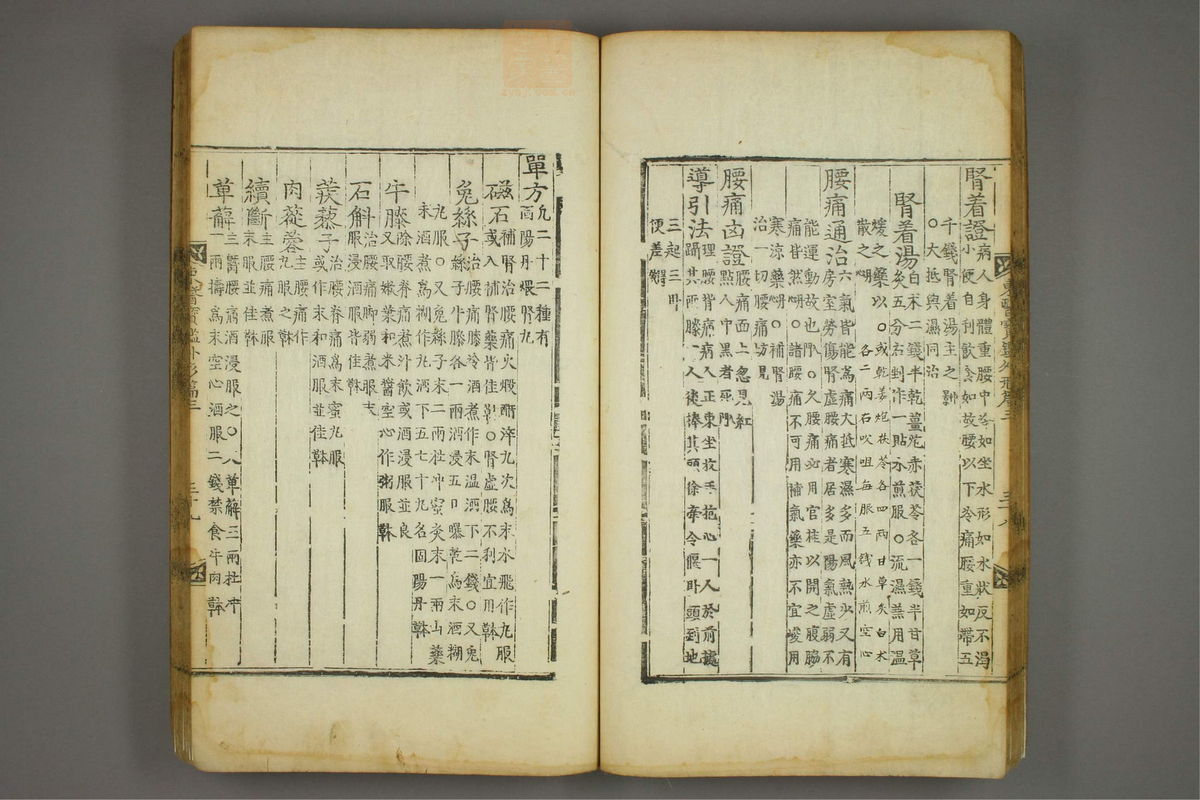 腎着證 病人身體重腰中冷如坐水形如水狀反不渴
小便自利飮食如故腰以下冷痛腰重如帶五
千錢腎着湯主之仲
○大抵與濕同治
腎着湯 白朮二錢半乾薑炮赤茯苓各一錢半甘草
灸五分右剉作一貼水煎服○流濕兼用溫
煖之藥以○或乾姜炮茯苓各四兩甘草灸白朮
散之綱 各二兩右㕮咀每服五錢水煎空心
腰痛通治 六氣皆能爲痛大抵寒濕多而風熱少又有
房室勞傷腎虛腰痛者居多是陽氣虛弱不
能運動故也入門○久腰痛必用官桂以開之腹脇
痛皆然綱○諸腰痛不可用補氣藥亦不宜峻用
寒涼藥綱○補腎湯
治一切腰痛方見
腰痛凶證 腰痛面上忽見紅
點人中黑者死入門
導引法 理腰背痛病人正東坐收手抱心一人於前據
躡其兩膝一人後捧其頭徐牽令偃臥頭到地
三起三臥
便差得效
單方 凡二十二種有
固陽丹煖腎丸
磁石 補腎治腰痛火煆醋淬九次爲末水飛作丸服
或入補腎藥皆佳本○腎虛腰不利宜用本
兎絲子 治腰痛膝冷酒煮作末溫酒下二錢○又兎
絲子牛膝各一兩酒浸五日曝乾爲末酒糊
丸服○又兎絲子末二兩杜冲蜜灸末一兩山藥
末酒煮爲糊作丸酒下五七十丸名固陽丹本
牛膝 除腰脊痛煮汁飮或酒浸服並良
又取嫩葉和米醬空心作粥服本
石斛 治腰痛脚弱煮服或
服浸酒服皆佳本
蒺藜子 治腰脊痛爲末蜜丸服
或作末和酒服並佳本
肉蓯蓉 主腰痛作
丸服之本
續斷 主腰痛煮服
末服並佳本
萆薢 主腎腰痛酒浸服之○又萆薢三兩杜冲
一兩擣爲末空心酒服二錢禁食牛肉本